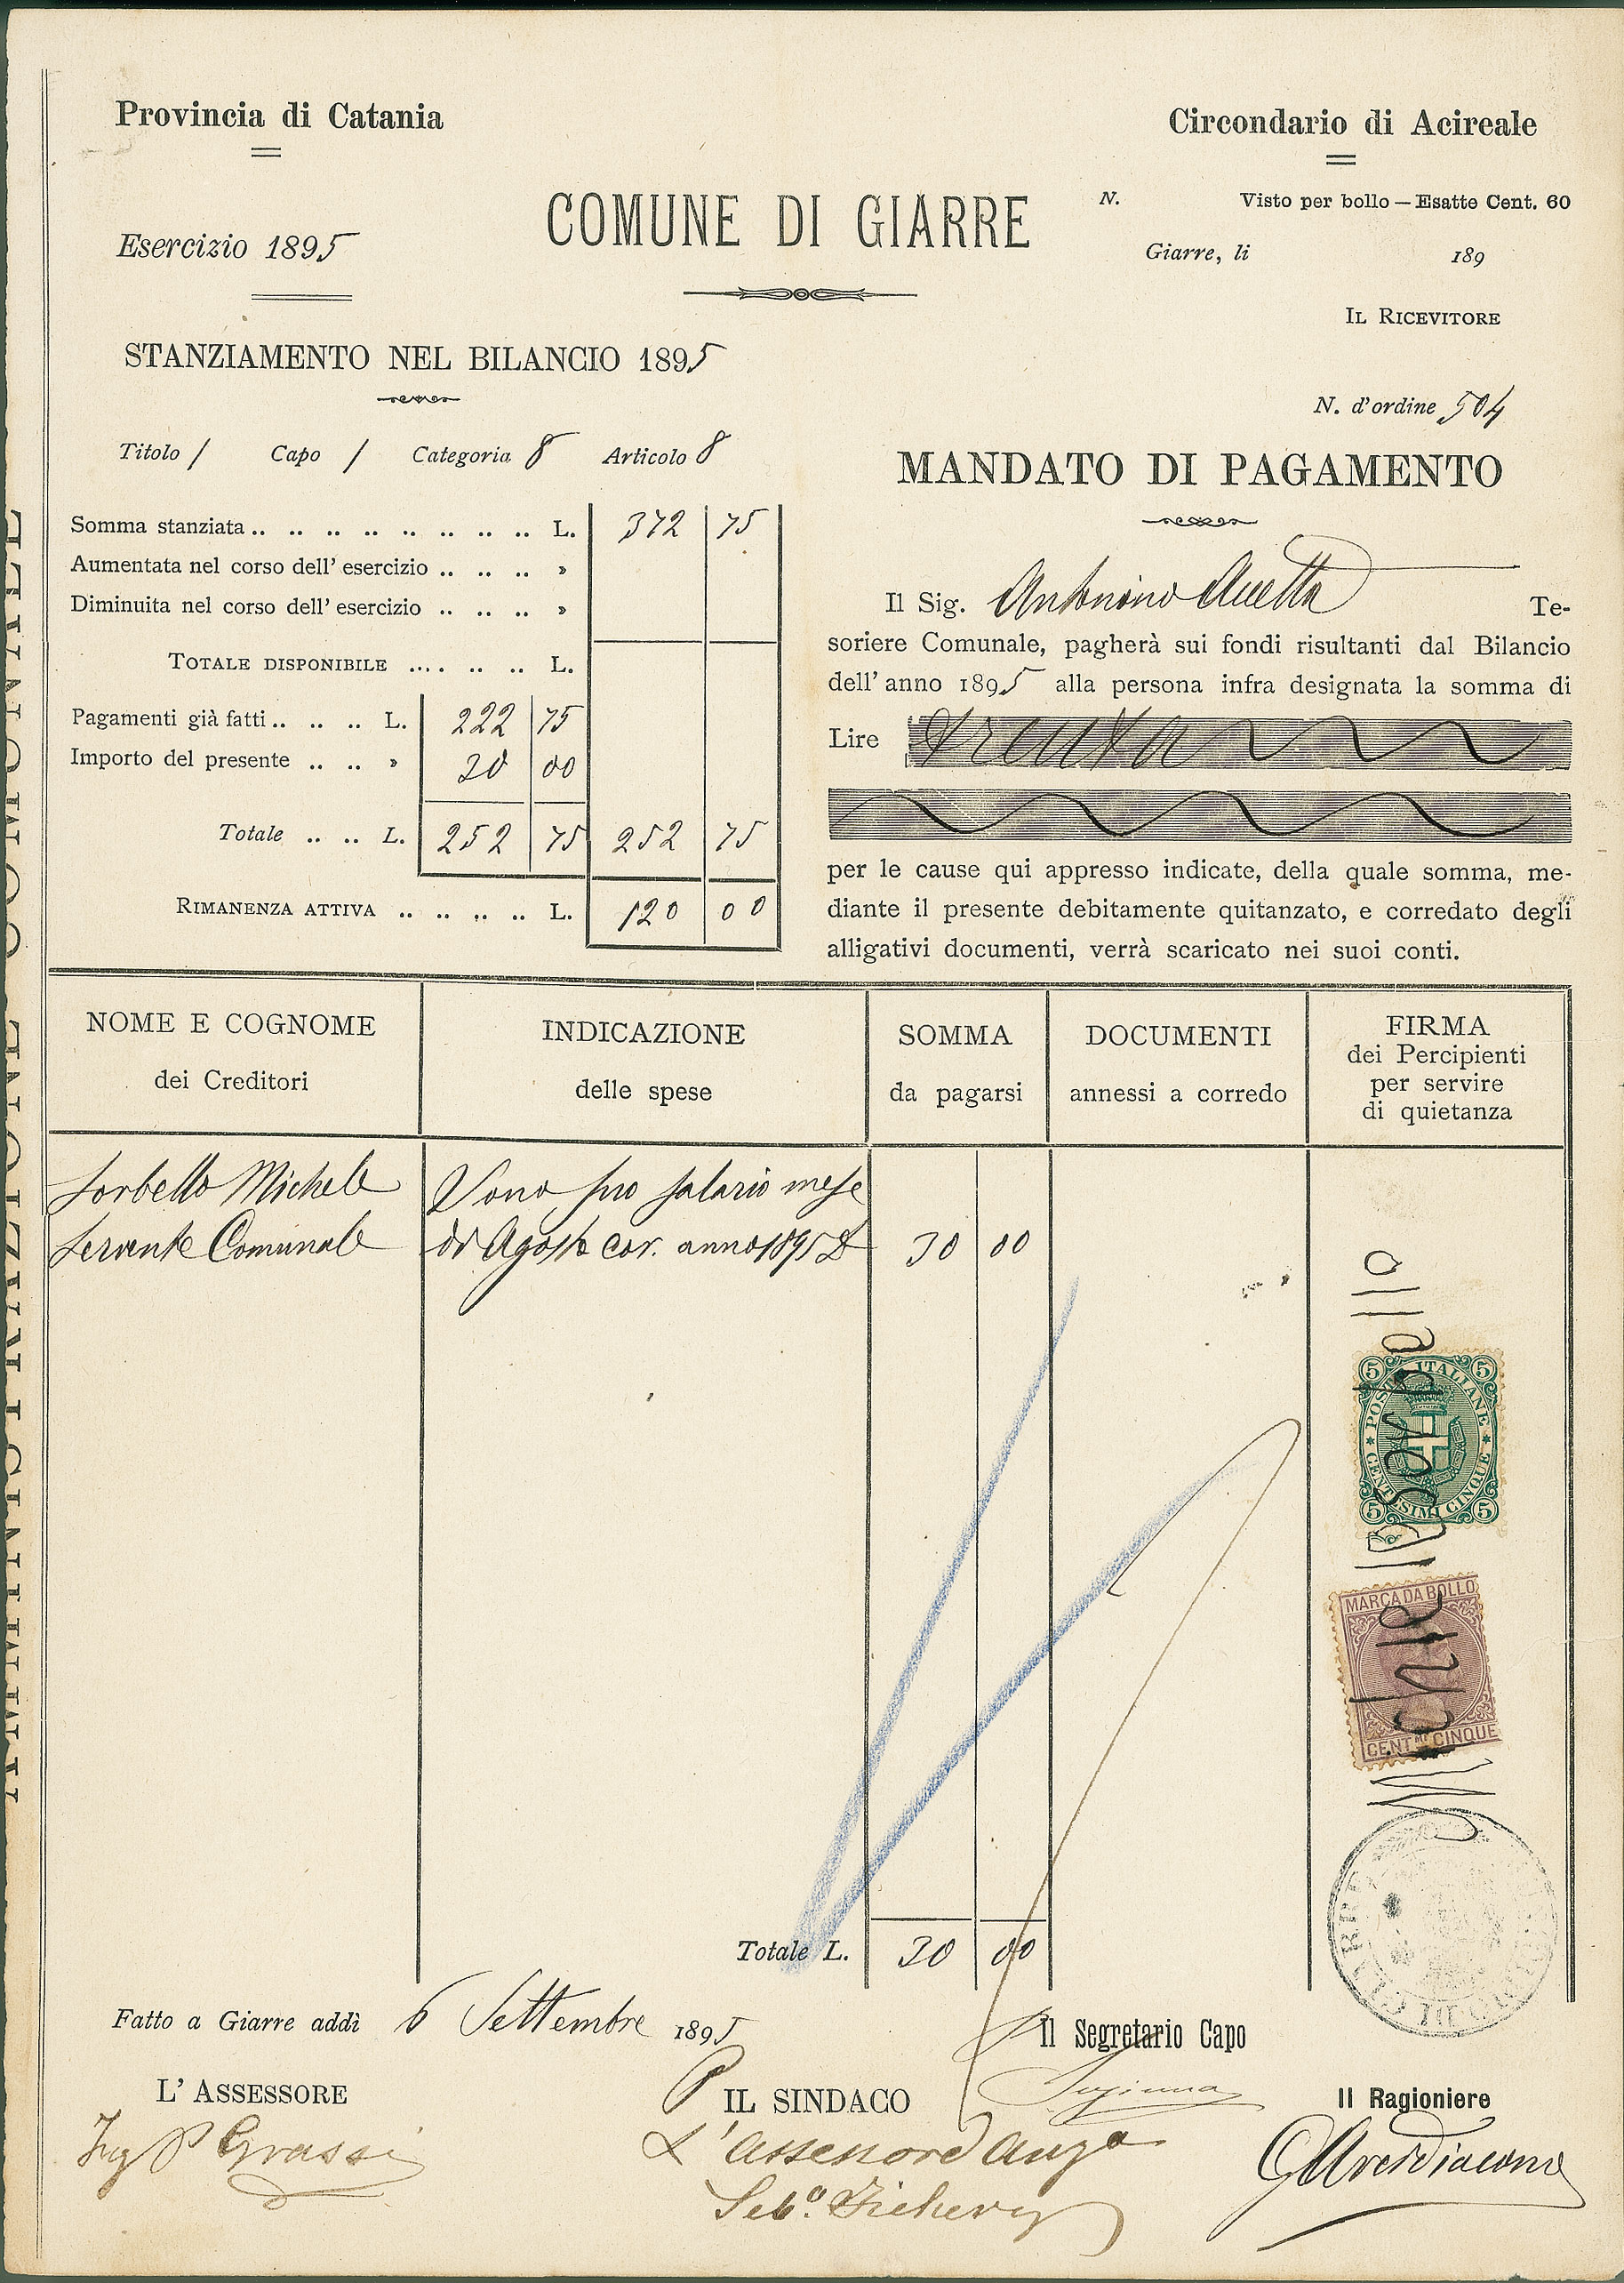 Provincia di Catania
Circondario di Acireale
COMUNE DI GIARRE
N. Visto per bollo — Esatte Cent. 60
Esercizio 1895
Giarre, li 189
IL RICEVITORE
STANZIAMENTO NEL BILANCIO 1895
Titolo / Capo / Categoria 8 Articolo 8
Somma stanziata .. .. .. .. .. .. .. .. L. 372 75
Aumentata nel corso dell' esercizio .. .. .. »
Diminuita nel corso dell' esercizio .. .. .. »
TOTALE DISPONIBILE .... .. .. L.
Pagamenti già fatti .. .. .. L. 222 75
Importo del presente .. .. » 30 00
Totale .. .. L. 252 75 252 75
RIMANENZA ATTIVA .. .. .. .. L. 120 00
N. d'ordine 504
MANDATO DI PAGAMENTO
Il Sig. Antonino Te-
soriere Comunale, pagherà sui fondi risultanti dal Bilancio
dell' anno 1895 alla persona infra designata la somma di
Lire trenta
per le cause qui appresso indicate, della quale somma, me-
diante il presente debitamente quitanzato, e corredato degli
alligativi documenti, verrà scaricato nei suoi conti.
NOME E COGNOME
dei Creditori
INDICAZIONE
delle spese
SOMMA
da pagarsi
DOCUMENTI
annessi a corredo
FIRMA
dei Percipienti
per servire
di quietanza
Sorbello Michele
Servente Comunale
Sono suo salario mese
di Agosto cor. anno 1895 L
30 00
Michele Sorbello
POSTE ITALIANE
CENTESIMI CINQUE
5 5 5 5
MARCA DA BOLLO
CENTMI CINQUE
Totale L. 30 00
Fatto a Giarre addì 6 Settembre 1895
Il Segretario Capo
L' ASSESSORE
P IL SINDACO
Il Ragioniere
Ing P Grassi
L'assessore Anzo
Sebo. Fichera
G Arcidiacono